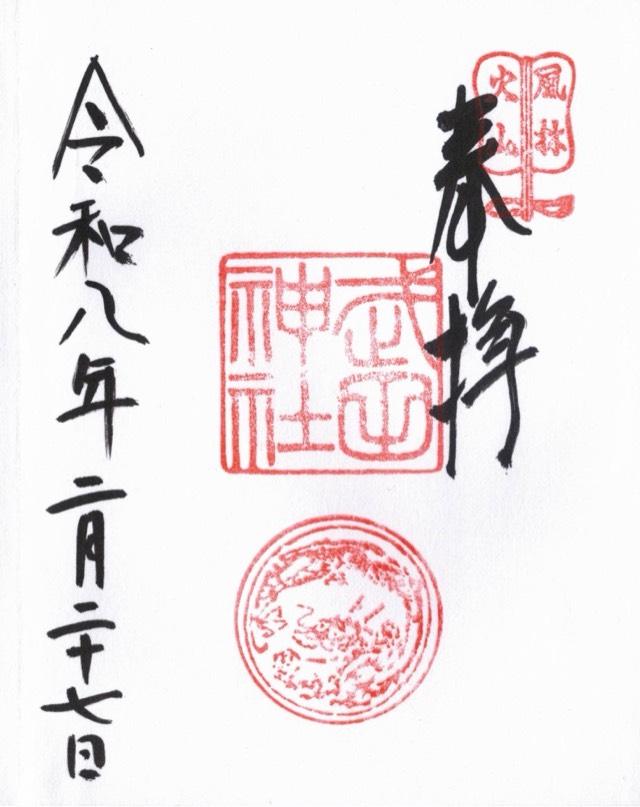 風林
火山
奉拝
武田
神社
令和八年二月二十七日